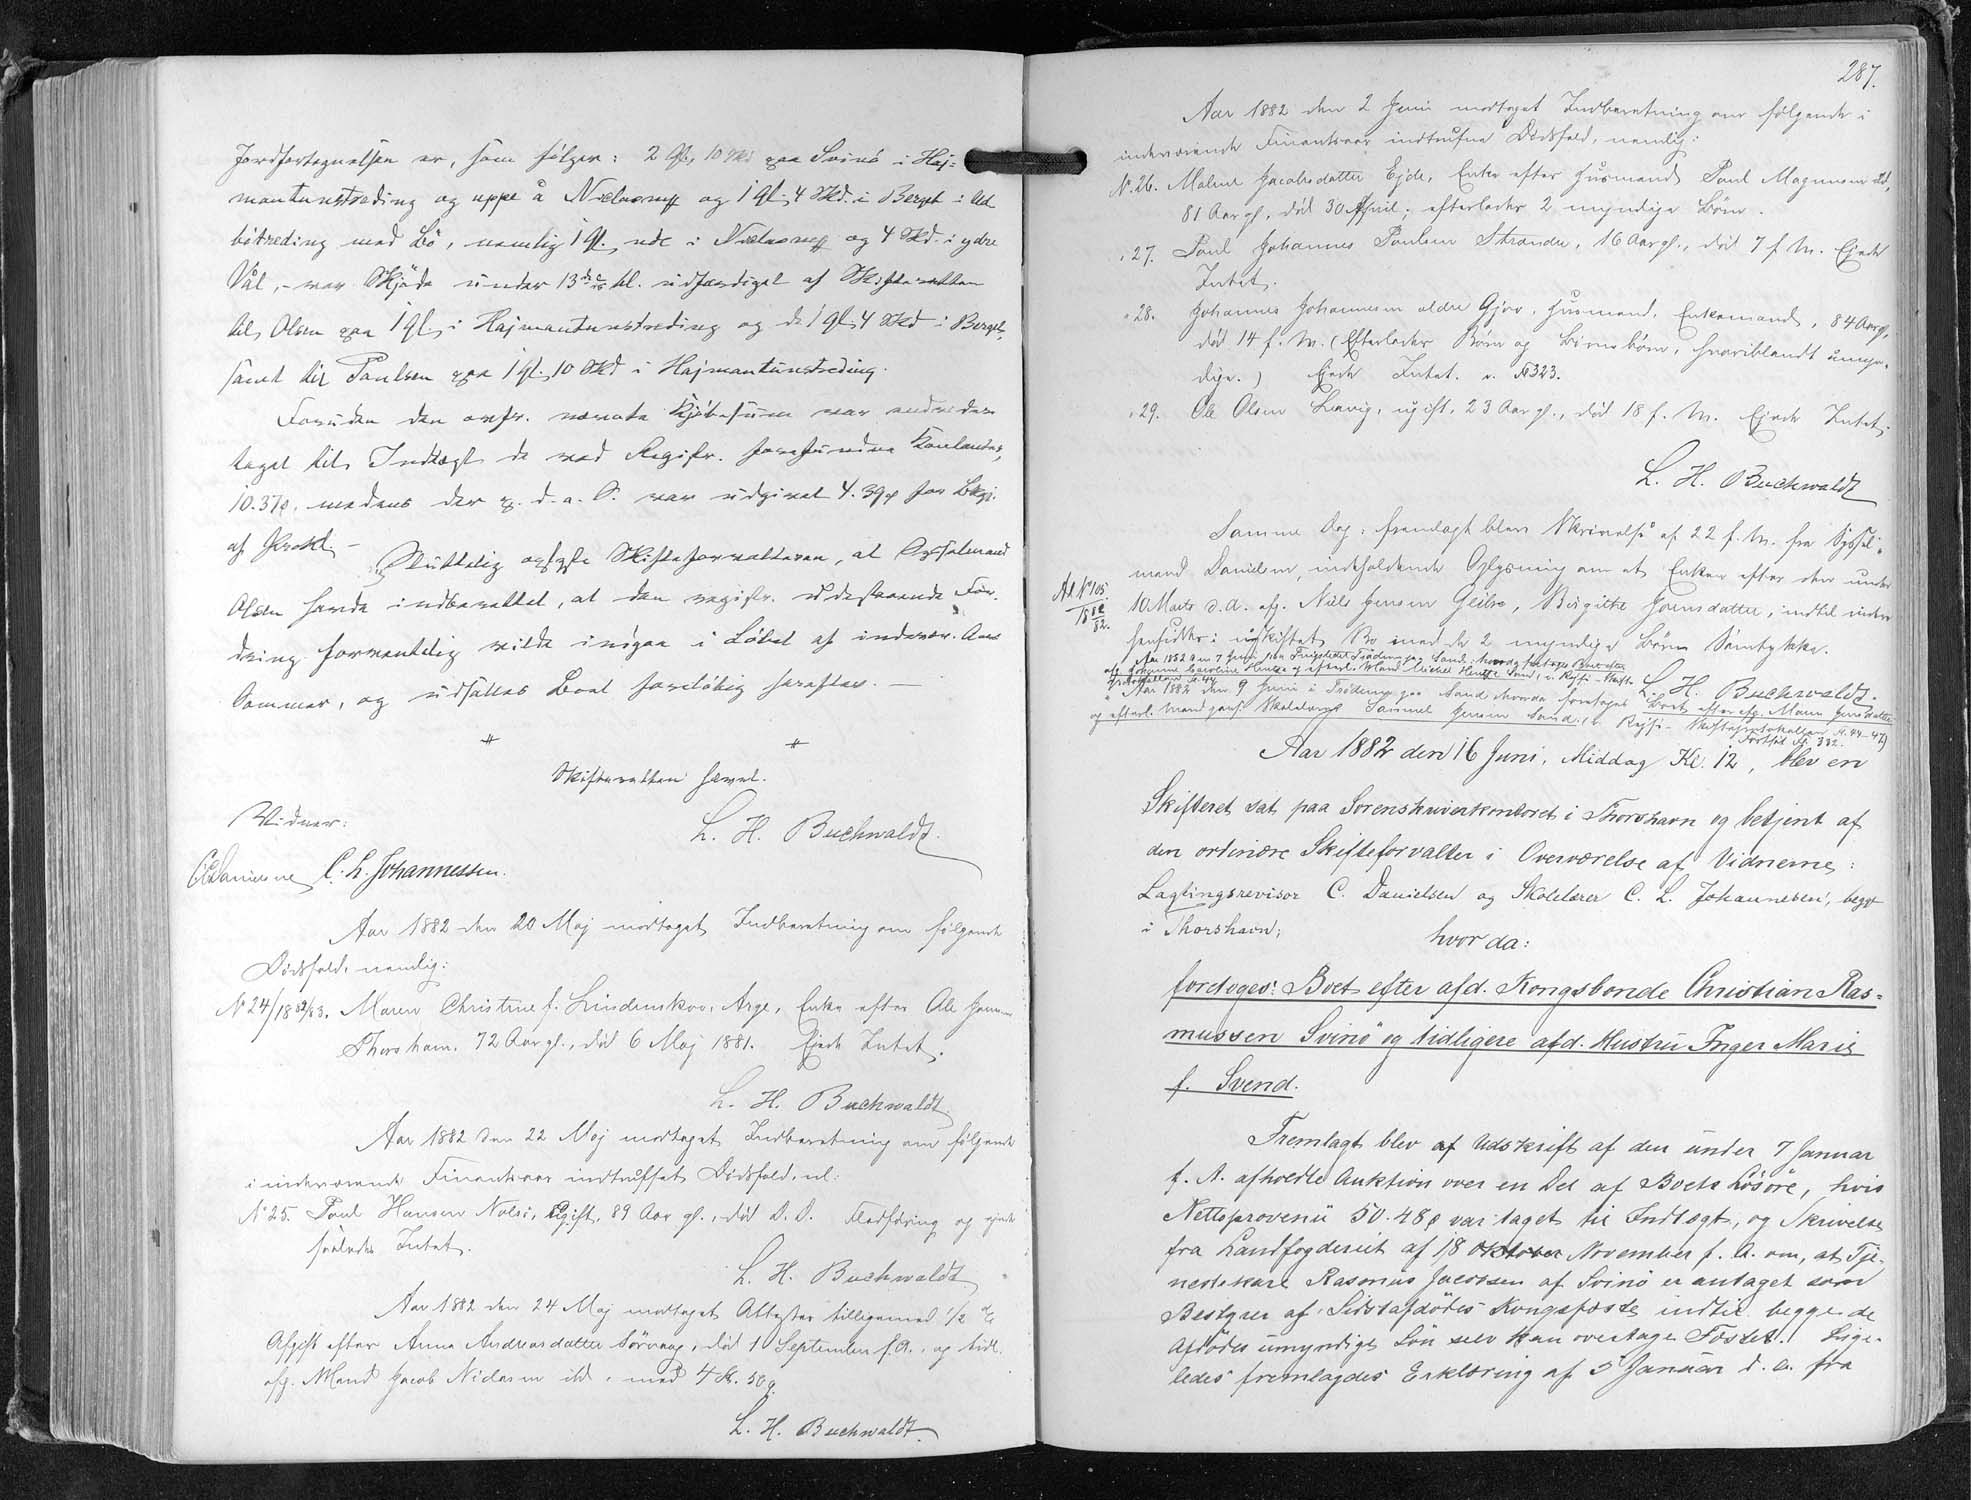 Jordfortegnelsen er, som følger: 2 Gl. 10 Skd paa Svinö i Haj-
mantunstreding og uppe å Niclasmyf og 1 Gl. 4 Skd. i Bergt i Ud
bötreding med Bö, nemlig 1 Gl. ude i Niclasmyf og 4 Skd. i ydre
Vål, - var Skjöde under 13de hl. udfærdiget af Skifteretten
til Olsen paa 1 Gl. i Hajmantunstreding og de 1 Gl. 4 Skd i Bergt,
samt til Poulsen paa 1 Gl. 10 Skd i Hajmantunstreding.
Foruden den anfr. nævnte Kjöbesum var endvidere
taget til Indtægt de ved Registr. forefundne Contanter,
10.37ø, medens der p. d. a. S. var udgivet 4.39ø for
af Prokl. -
Sluttelig oplyste Skifteforvalteren, at Sysselmand
Olsen havde indberettet, at den registr. udestaaende For-
dring formentlig vilde indgaa i Löbet af indevær. Aars
Sommer, og udsattes Boet foreløbig herefter. -
Skifteretten hævet.
Vidner: L. H. Buchwaldt.
CDanielsen C. L. Johannessen.
Aar 1882 den 20 Maj modtoges Indberetning om følgende
Dødsfald, nemlig:
No 24/1882/83. Maren Christine f. Lindenskov, Arge, Enke efter Ole Jensen
Thorshavn, 72 Aar gl., død 6 Maj 1881. Ejede Intet.
L. H. Buchwaldt
Aar 1882 den 22 Maj modtoges Indberetning om følgende
i indeværende Finantsaar indtruffet Dødsfald, nl:
No 25. Poul Hansen Nolsö, Ugift, 89 Aar gl., død D. D. og ejede
saaledes Intet.
L. H. Buchwaldt
Aar 1882 den 24 Maj modtoges Attester tilligemed 1/2 %
Afgift efter Anna Andreasdatter Sörvaag, død 1 September f. A., og tidl.
afg. Mand Jacob Niclasen ibd, med 4 K. 50 ø.
L. H. Buchwaldt
287.
Aar 1882 den 2 Juni modtoges Indberetning om følgende i
indeværende Finantsaar indtrufne Dødsfald, nemlig:
No 26. Malene Jacobsdatter Ejde, Enke efter Husmand Poul Magnussen ibd,
81 Aar gl., død 30 April; efterlader 2 myndige Börn.
" 27. Poul Johannes Poulsen Strander, 16 Aar gl., död 7 f. M. Ejede
Intet.
" 28. Johannes Johannesen ældre Gjov, Husmand, Enkemand, 84 Aar gl.,
död 14 f. M. (Efterlader Börn og Börnebörn, hvoriblandt umyn-
dige.) Ejede Intet. v. No 323.
" 29. Ole Olsen Lervig, ugift, 23 Aar gl., död 18 f. M. Ejede Intet.
L. H. Buchwaldt
Samme Dag: fremlagt blev Skrivelse af 22 f. M. fra Syssel-
mand Danielsen, indeholdende Oplysning om at Enken efter den under
10 Marts d. A. afg. Niels Jensen Glibre, Birgithe Joensdatter, indtil videre
hensidder i uskiftet Bo med de 2 myndige Börns Samtykke.
Aar 1882 den 7 Juni paa Tingstedet Trödum paa Sand: hvorda foretoges Boet efter
L. H. Buchwaldt.
Aar 1882 den 9 Juni i Trödum paa Sand hvorda foretoges Boet efter afg. Maren Jensdatter
og efterl. Mand Samuel Jensen Sand. (v. Rejse-Skifteprotokollen p. 44-47)
Fortsat p. 332.
Aar 1882 den 16 Juni, Middag Kl. 12, blev en
Skifteret sat paa Sorenskriverkontoret i Thorshavn og betjent af
den ordinære Skifteforvalter i Overværelse af Vidnerne:
Lagtingsrevisor C. Danielsen og Skolelærer C. L. Johannesen, begge
i Thorshavn;
hvor da:
foretoges: Boet efter afd. Kongsbonde Christian Ras-
mussen Svinö og tidligere afd. Hustru Inger Marie
f. Svend.
Fremlagt blev af Udskrift af den under 7 Januar
f. A. afholdte Auktion over en Del af Boets Lösöre, hvis
Nettoprovenü 50.48ø var taget til Indtægt, og Skrivelse
fra Landfogderiet af 18 Oktober November f. A. om, at Tje-
nestekarl Rasmus Jacobsen af Svinö er antaget som
Bestyrer af Sidstafdødes Kongsfæste indtil begge de
Afdødes umyndige Sön selv kan overtage Fæstet. Lige-
ledes fremlagdes Erklæring af 5 Januar d. a. fra